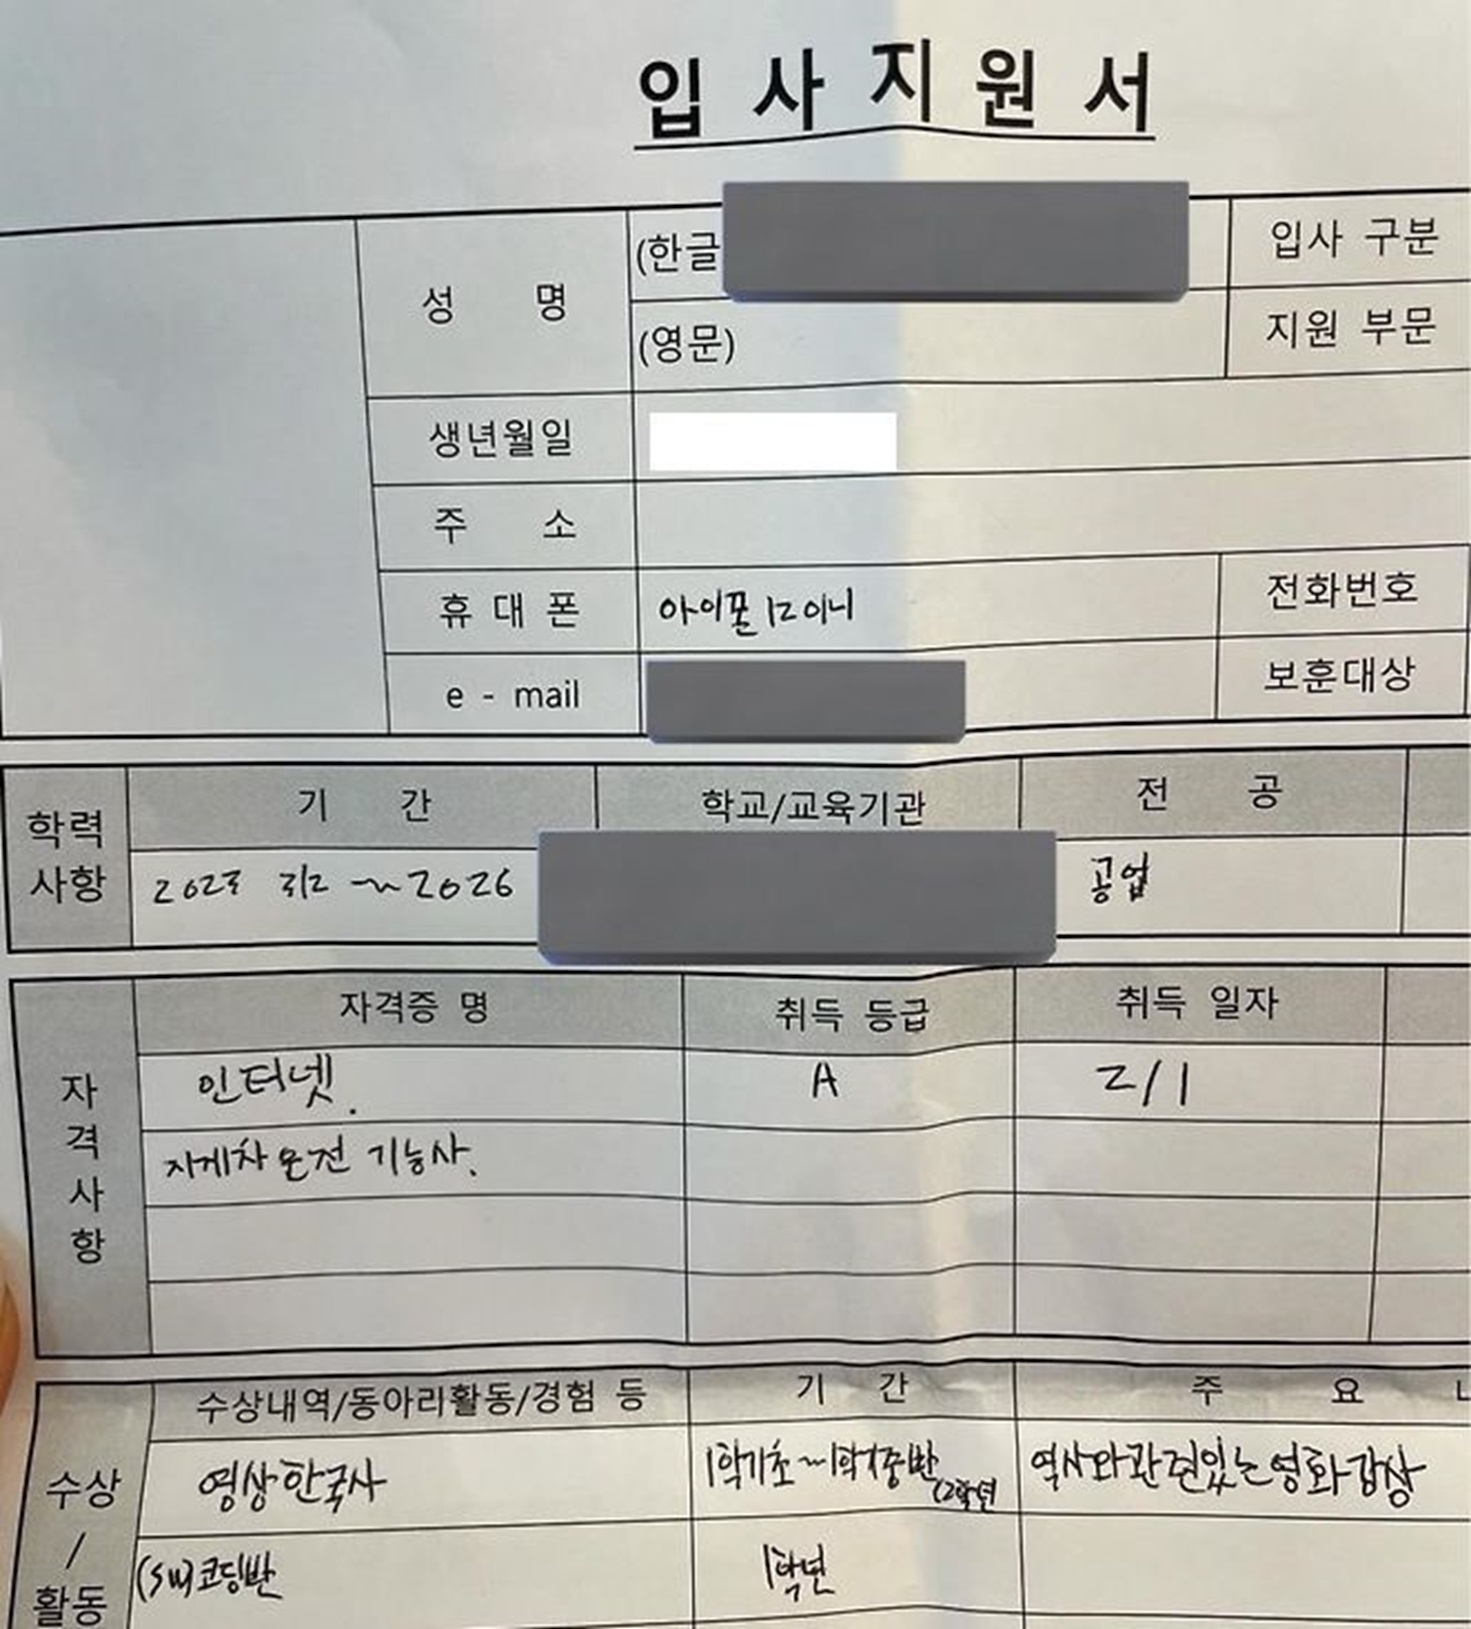 입사지원서
성 명 (한글 입사 구분
(영문) 지원 부문
생년월일
주 소
휴대폰 아이폰 12 미니 전화번호
e - mail 보훈대상
학력사항 기 간 학교/교육기관 전 공
2023 3/2 ~ 2026 공업
자격사항 자격증 명 취득 등급 취득 일자
인터넷. A 2/1
지게차 운전 기능사.
수상/활동 수상내역/동아리활동/경험 등 기 간 주 요
영상한국사 1학기초~1학기중반 (2학년 역사와관련있는영화감상
(SW)코딩반 1학년